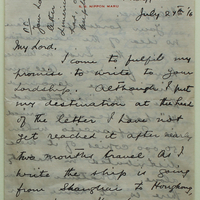 S.S. NIPPON MARU
July 29th 16
My Lord,
I come to fulfil my
promise to write to your
Lordship. Although I put
my destination at the head
of the letter I have not
yet reached it after
two months travel. As I
write the ship is going
from Shanghai to Hongkong,